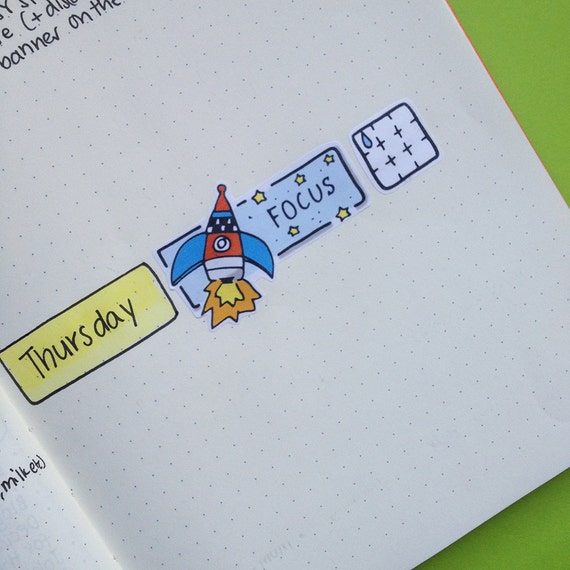 e (+ dise
banner on the
FOCUS
Thursday
, milket)